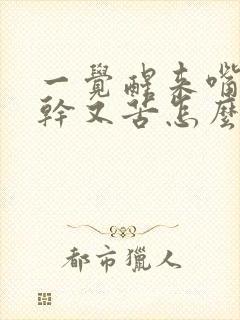 一覺醒來嘴
幹又苦怎麼
都市獵人